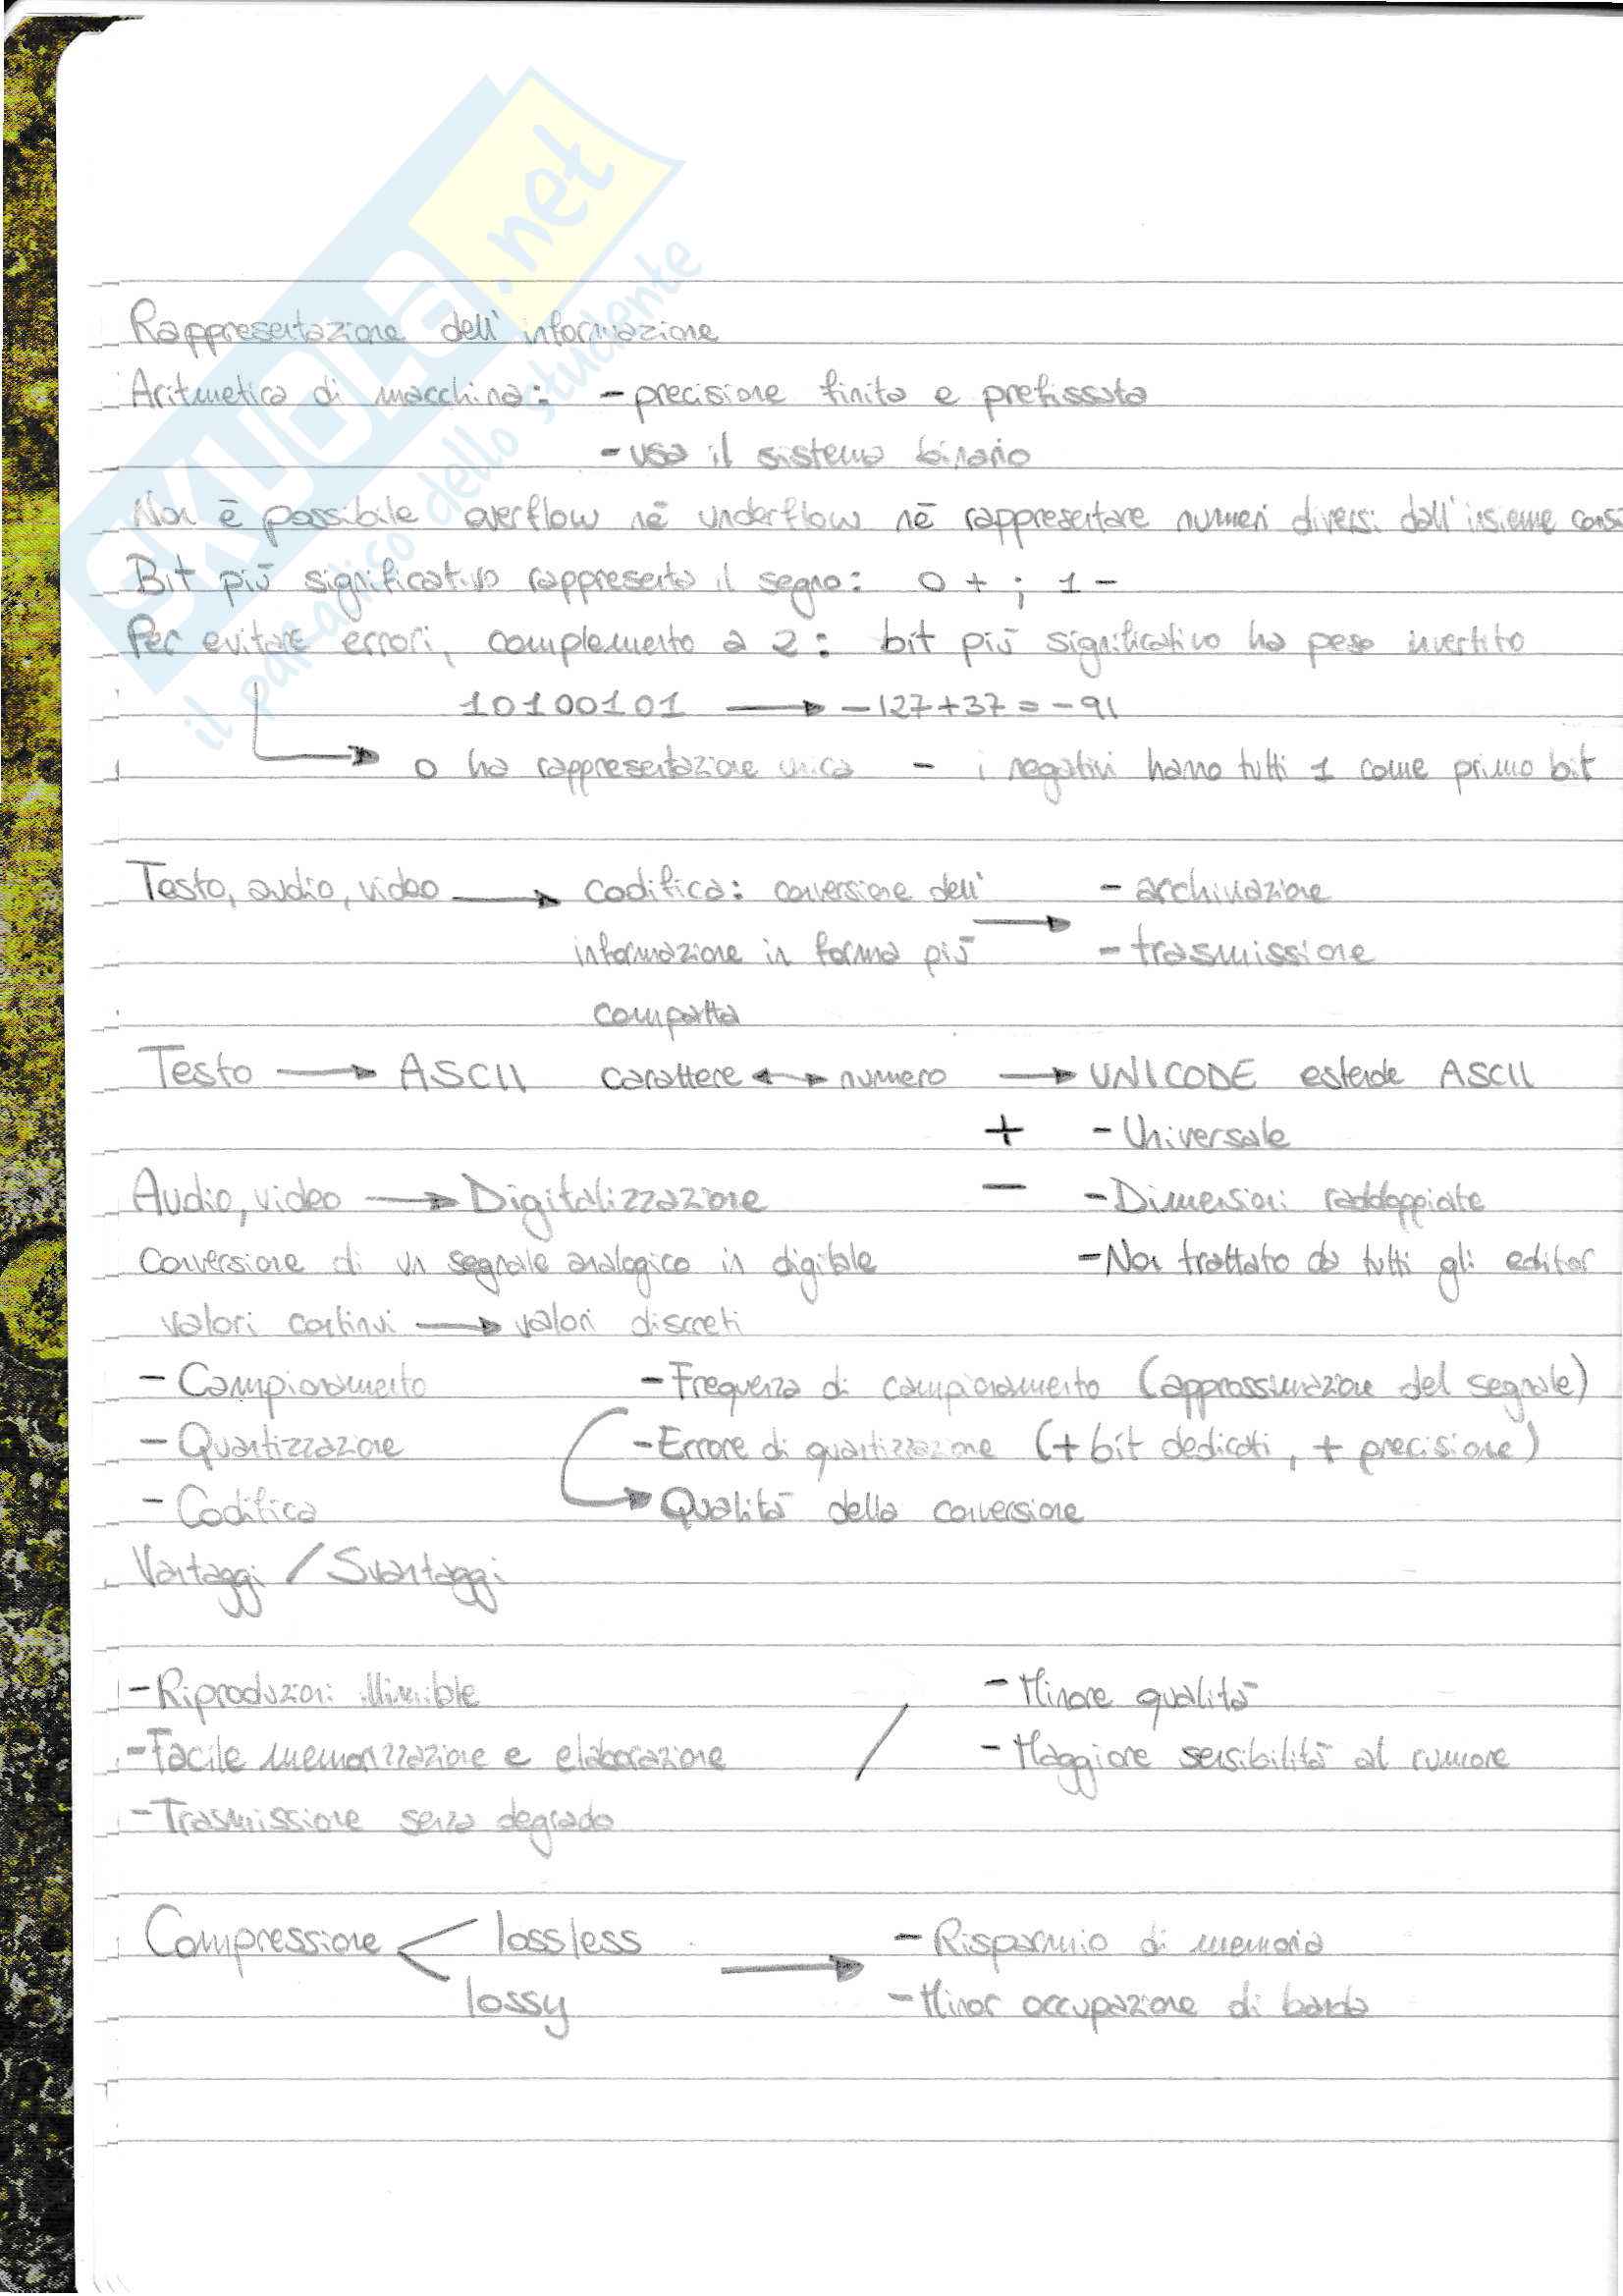 SKUOLA.net
il paradiso dello studente
Rappresentazione dell'informazione
Aritmetica di macchina: - precisione finita e prefissata
- usa il sistema binario
Non è possibile overflow né underflow né rappresentare numeri diversi dall'insieme consi
Bit più significativo rappresenta il segno: 0 + ; 1 -
Per evitare errori, complemento a 2: bit più significativo ha peso invertito
10100101 → -127+37 = -91
→ 0 ha rappresentazione unica - i negativi hanno tutti 1 come primo bit
Testo, audio, video → codifica: conversione dell' → - archiviazione
informazione in forma più - trasmissione
compatta
Testo → ASCII carattere ↔ numero → UNICODE estende ASCII
+ - Universale
Audio, video → Digitalizzazione - - Dimensioni raddoppiate
conversione di un segnale analogico in digitale - Non trattato da tutti gli editor
valori continui → valori discreti
- Campionamento - Frequenza di campionamento (approssimazione del segnale)
- Quantizzazione - Errore di quantizzazione (+ bit dedicati, + precisione)
- Codifica → Qualità della conversione
Vantaggi / Svantaggi
- Riproduzioni - Minore qualità
- Facile memorizzazione e elaborazione / - Maggiore sensibilità al rumore
- Trasmissione senza degrado
Compressione < lossless → - Risparmio di memoria
lossy - Minor occupazione di banda